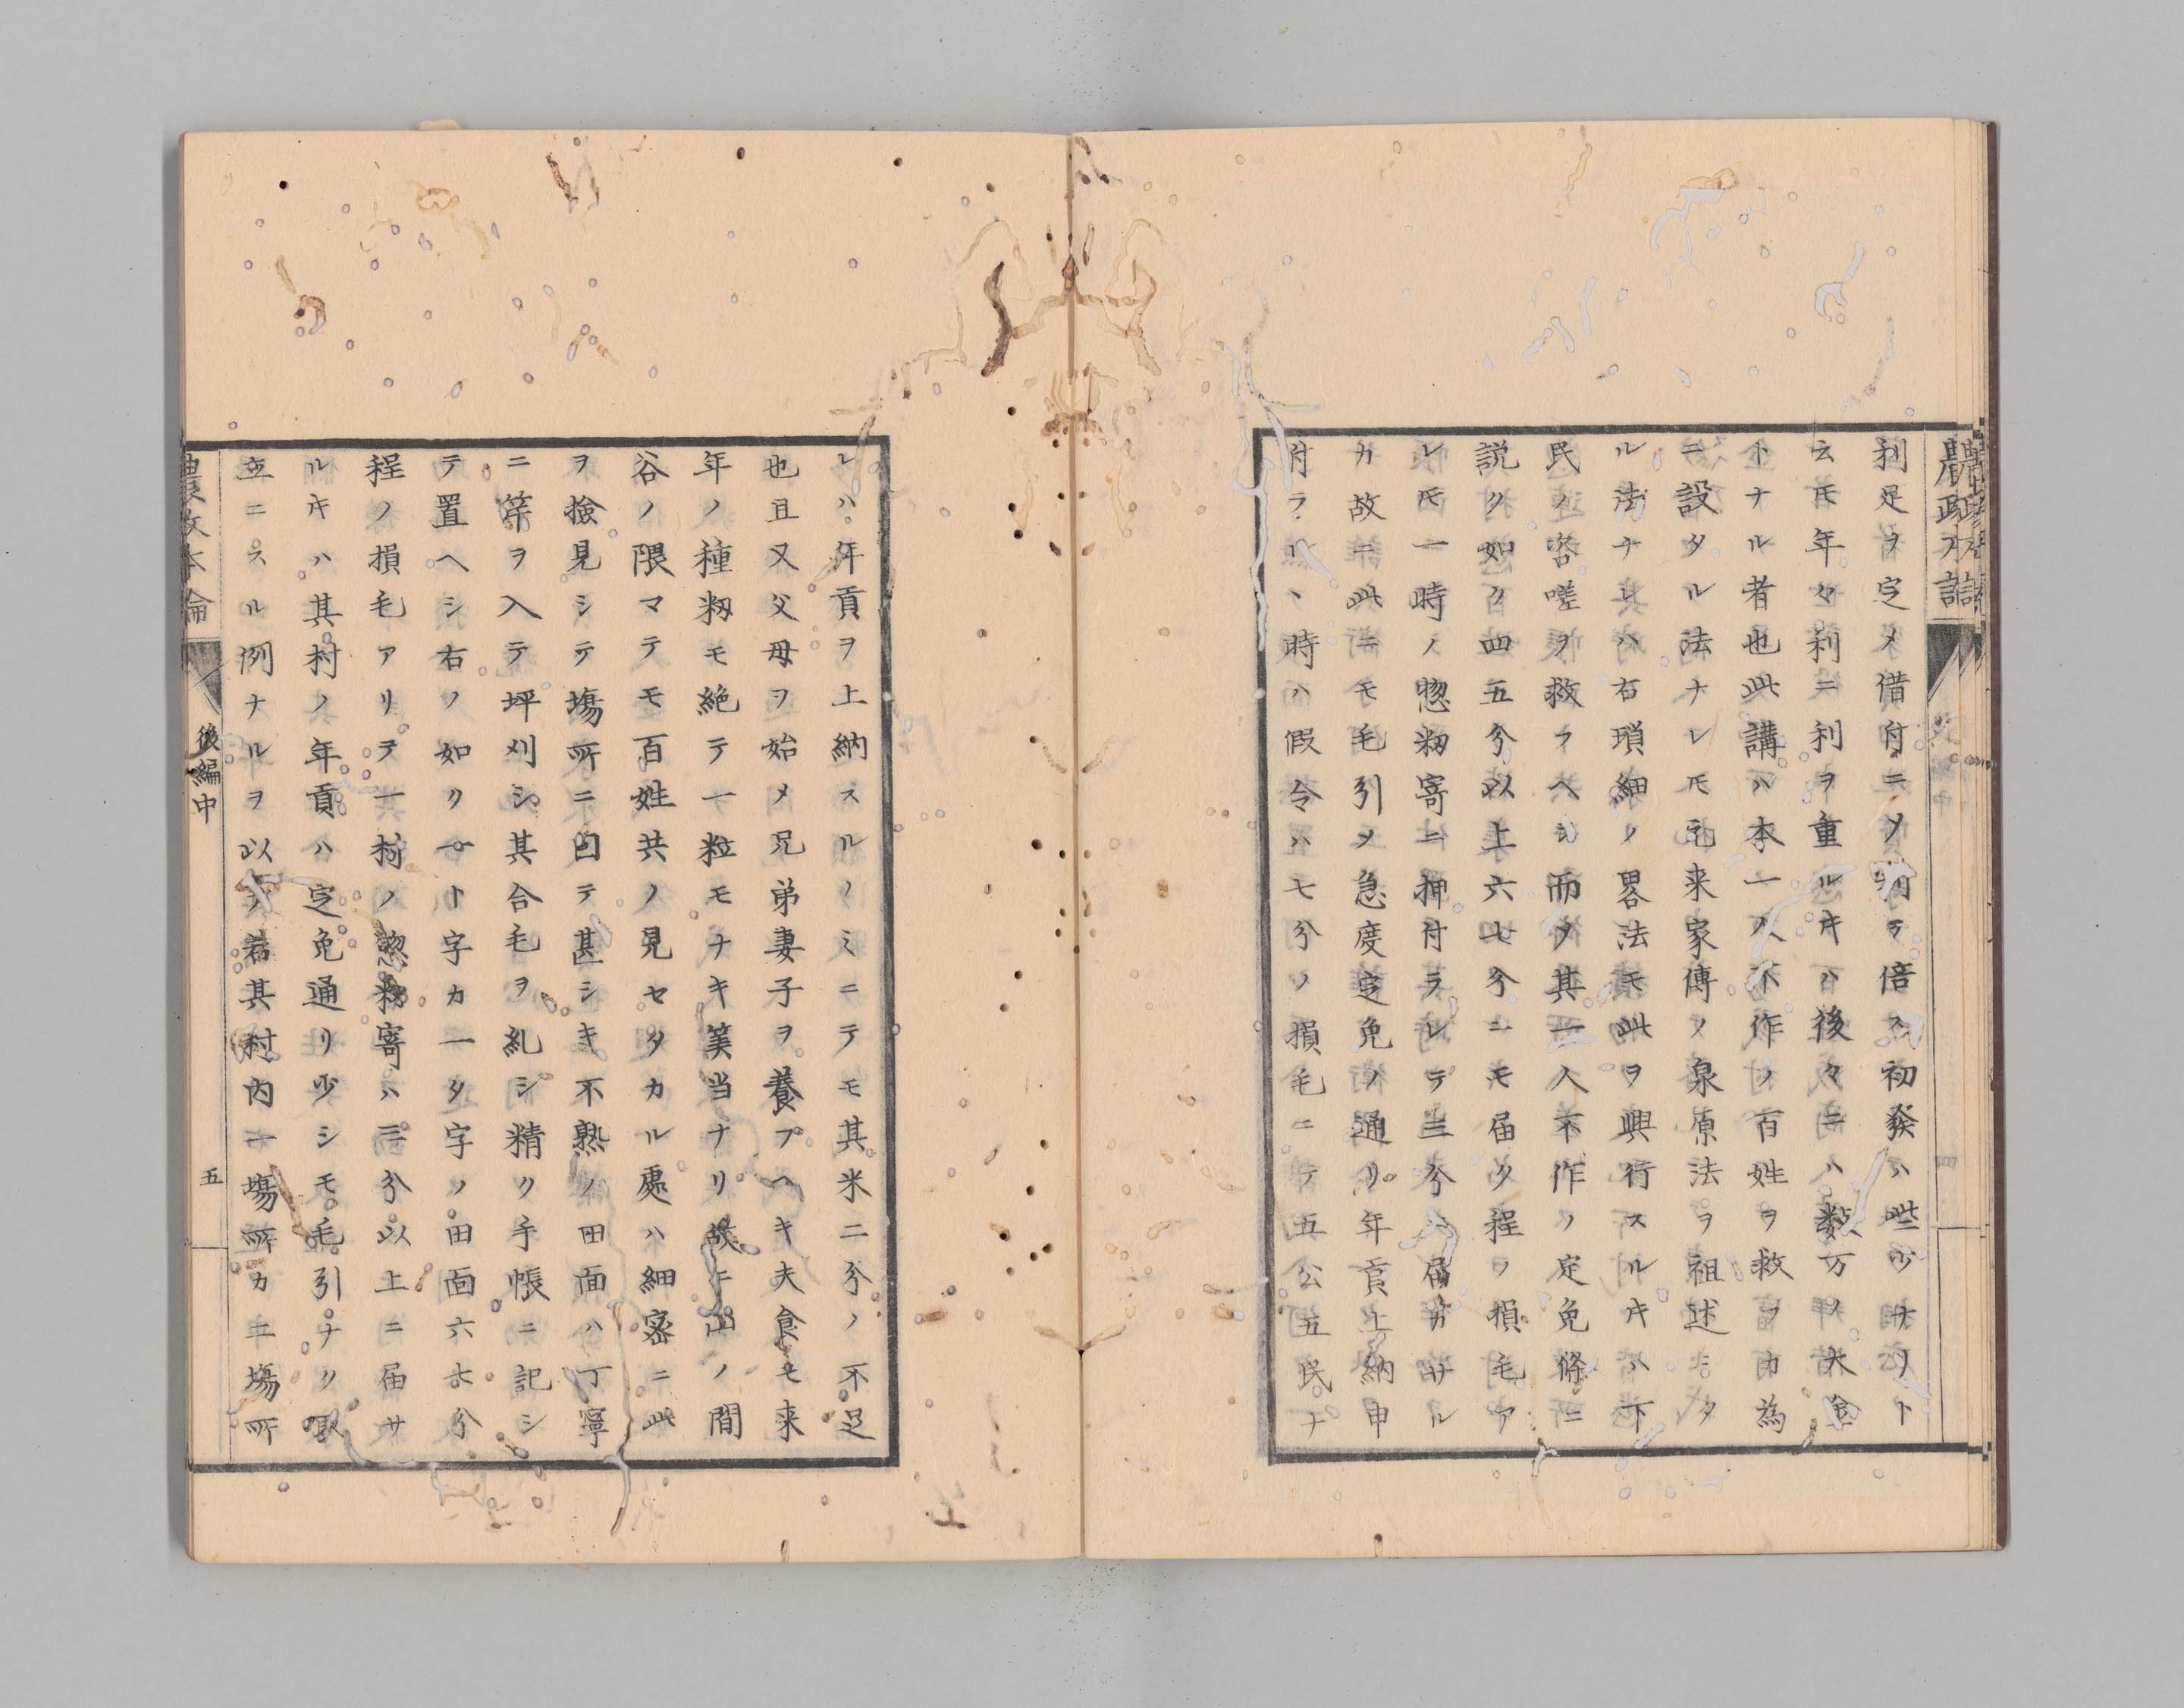 利足ヲ定メ借付ニメ利ヲ倍ス初発ハ些少ナリト
云𪜈年々利ニ利ヲ重ルキハ後々ニハ数万ノ大金
トナル者也此講ハ本一人不作ノ百姓ヲ救ヲカ為
ニ設タル法ナレ𪜈元来家傳ノ泉原法ヲ祖述シタ
ル法ナレハ右瑣細ノ畧法モ此ヲ興行スルキハ下
民ノ咨嗟ヲ救フヘシ而タ其一人不作ノ定免條ニ
説ク如ク四五分以上六七分ニモ届タ程ノ損毛ア
レ𪜈一時ノ惣籾寄ニ押付ラレテ三分ニ届カサル
カ故ニ此ニモ毛引メ急度定免ノ通リ年貢上納申
付ラル丶時ハ假令ハ七分ノ損毛ニテ五公五民ナ
レハ年貢ヲ上納スルノミニテモ其米二分ノ不足
也且又父母ヲ始メ兄弟妻子ヲ養フヘキ夫食モ来
年ノ種籾モ絶テ一粒モナキ筭当ナリ故ニ山ノ間
谷ノ隈マテモ百姓共ノ見セタカル処ハ細密ニ此
ヲ撿見シテ場所ニ因テ甚シキ不熟ノ田面ハ丁寧
ニ竿ヲ入テ坪刈シ其合毛ヲ糺シ精ク手帳ニ記シ
テ置ヘシ右ノ如ク一ト字カ一タ字ノ田面六七分
程ノ損毛アリテ一村ノ惣籾寄ハ三分以上ニ届サ
ルキハ其村ノ年貢ハ定免通リ少シモ毛引ナク取
立ニスル例ナルヲ以テ若其村内一場所カ二場所
農政本論
後編中
五